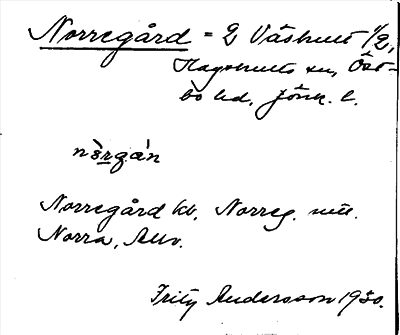 Norregård = 2 Västhult 1/2,
Hagshults sn, Öst-
bo hd, Jönk. l.
nòrgán
Norregård kb, Norreg.
Norra,
Fritz Andersson 1930.